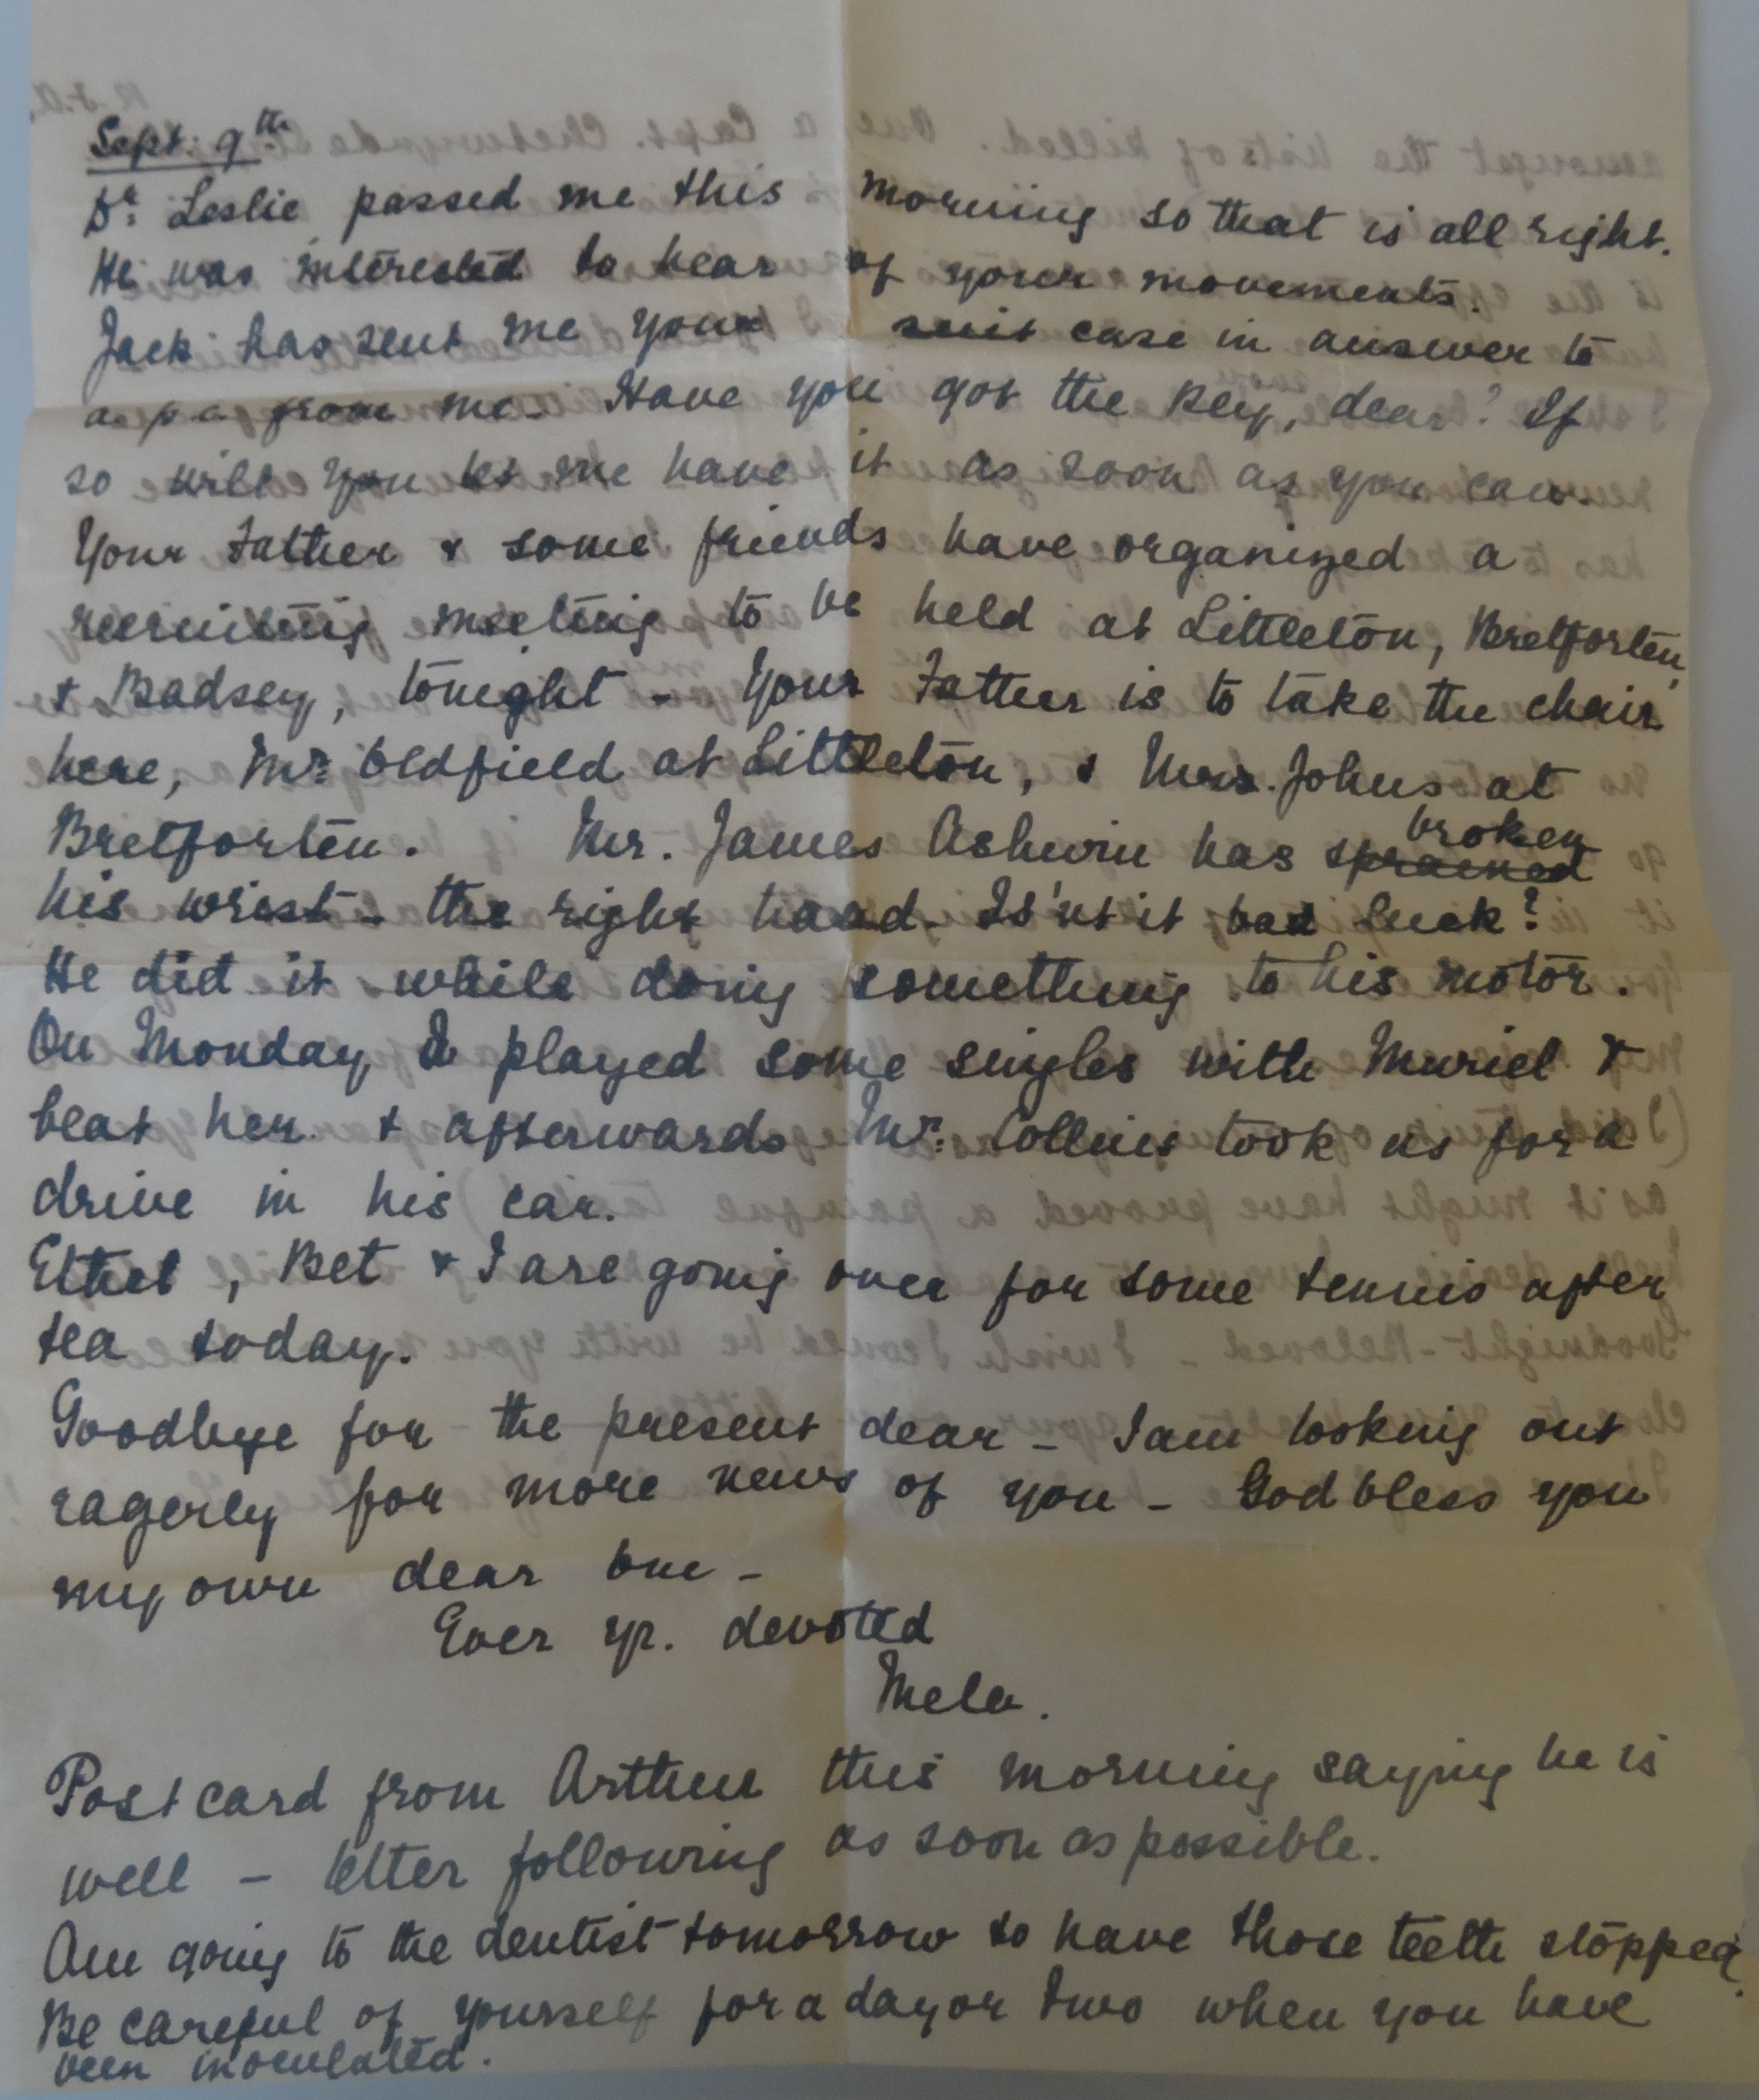 Sept: 9th
Dr: Leslie passed me this morning so that is all right.
He was interested to hear of your movements.
Jack has sent me your suit case in answer to
a p.c. from me. Have you got the key, dear? If
so will you let me have it as soon as you can.
Your Father & some friends have organized a
recruiting meeting to be held at Littleton, Bretforten,
& Badsey, tonight - Your Father is to take the chair
here, Mr: Oldfield at Littleton, & Mrs. Johns at
Bretforten. Mr. James Ashwin has sprained broken
his wrist - the right hand. Is'nt it bad luck?
He did it while doing something to his motor.
On Monday I played some singles with Muriel &
beat her & afterwards Mr: Collins took us for a
drive in his car.
Ethel, Bet & I are going over for some tennis after
tea today.
Goodbye for the present dear - I am looking out
eagerly for more news of you - God bless you
my own dear one -
Ever yr. devoted
Mela.
Post card from Arthur this morning saying he is
well - letter following as soon as possible.
Am going to the dentist tomorrow to have those teeth stopped.
Be careful of yourself for a day or two when you have
been inoculated.